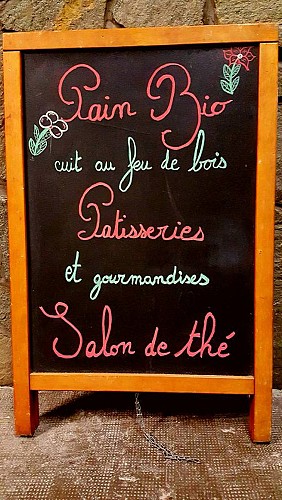 Pain Bio
cuit au feu de bois
Patisseries
et gourmandises
Salon de thé